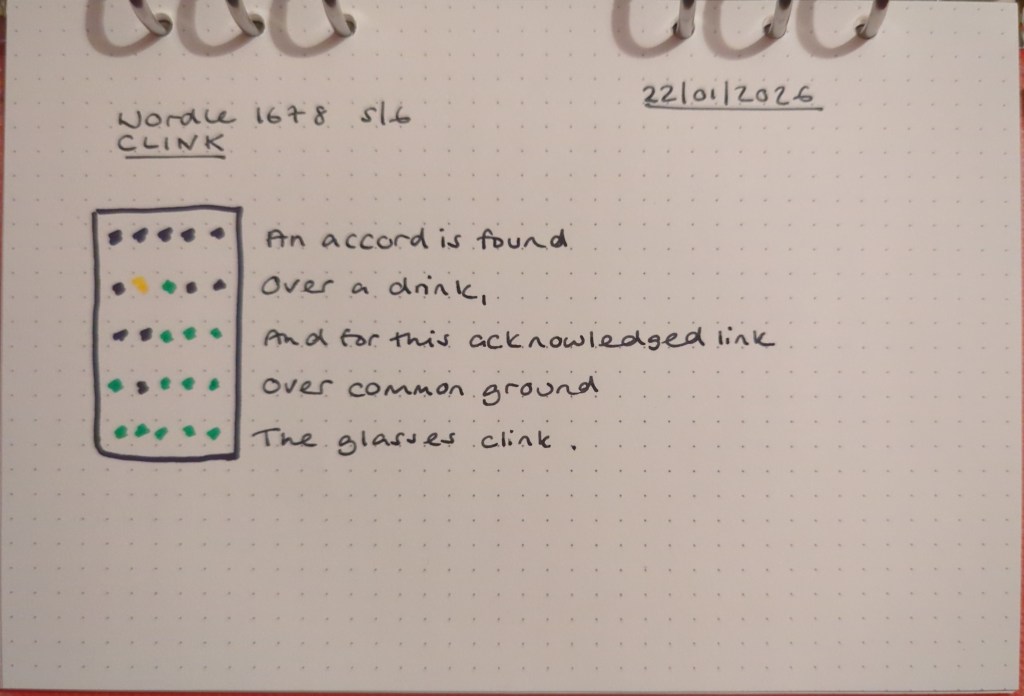 22/01/2026
Wordle 1678 5/6
CLINK
An accord is found
Over a drink,
And for this acknowledged link
Over common ground
The glasses clink.